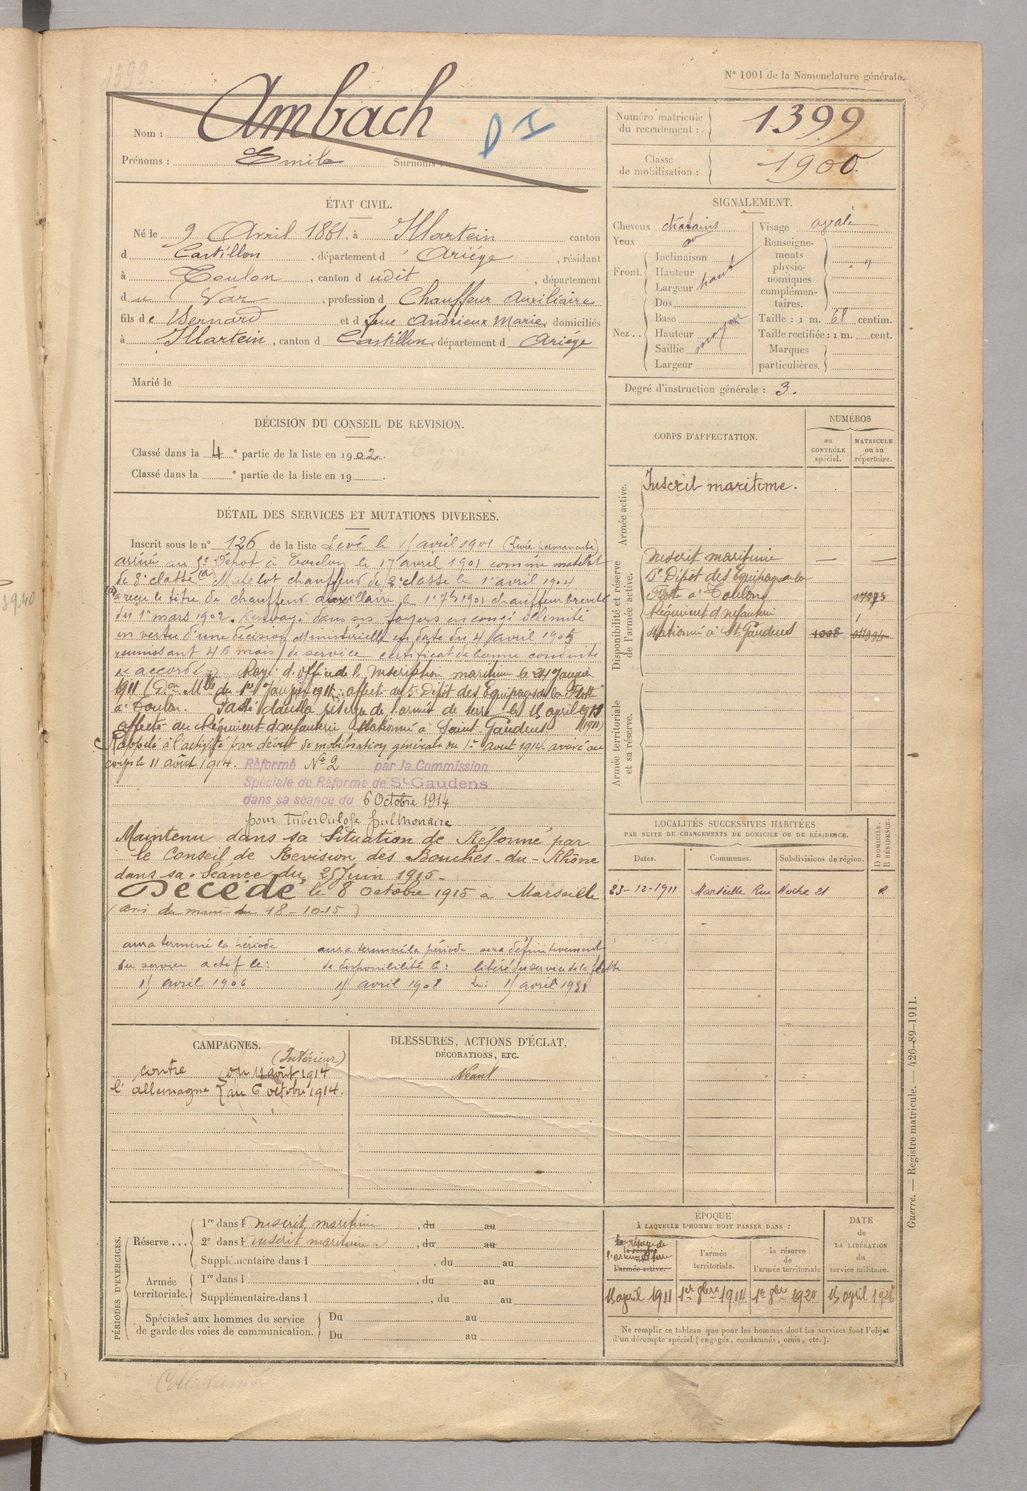 1399
N° 1001 de la Nomenclature générale.
Nom : Ambach
P I
Prénoms : Emile Surnoms :
Numéro matricule du recrutement : 1399
Classe de mobilisation : 1900.
ÉTAT CIVIL.
Né le 9 Avril 1881 à Illartein canton
d Castillon, département d' Ariége, résidant
à Toulon, canton d udit, département
d u Var, profession d Chauffeur Auxiliaire
fils de Bernard et d feue Andrieux Marie, domiciliés
à Illartein, canton d Castillon, département d Ariége
Marié le
SIGNALEMENT.
Cheveux chatains
Yeux
Front. Inclinaison
Hauteur haut
Largeur
Dos
Nez.. Base
Hauteur moyen
Saillie
Largeur
Visage ovale
Renseignements physionomiques complémentaires. "
Taille : 1 m. 68 centim.
Taille rectifiée : 1 m. cent.
Marques particulières.
Degré d'instruction générale : 3.
DÉCISION DU CONSEIL DE REVISION.
Classé dans la 4e partie de la liste en 1902.
Classé dans la e partie de la liste en 19 .
DÉTAIL DES SERVICES ET MUTATIONS DIVERSES.
Inscrit sous le n° 126 de la liste Levé le 15 avril 1901 (Levée permanente)
arrivé au 5e Dépot à Toulon le 17 avril 1901 comme matelot
de 3e classe Matelot chauffeur de 2e classe le 1er avril 1904
a reçu le titre de chauffeur auxiliaire le 1er 7bre 1901 chauffeur breveté
du 1er mars 1902. Renvoyé dans ses foyers en congé illimité
en vertu d'une décision ministerielle en date du 4 avril 1905
réunissant 46 mois de service certificat de bonne conduite
accordé. Rayé d'office de l'Inscription maritime le 21 Janvier
1911 affecté au 5e Dépôt des Equipages de la Flotte
à Toulon. Passé dans la réserve de l'armée de terre le 15 avril 1911
affecté au Régiment d'Infanterie stationné à Saint Gaudens
Rappelé à l'activité par décret de mobilisation générale du 1er août 1914. arrivé au
corps le 11 août 1914. Réformé N° 2 par la Commission
Spéciale de Réforme de St Gaudens
dans sa séance du 6 Octobre 1914
pour Tuberculose pulmonaire
Maintenu dans sa Situation de Réformé par
le Conseil de Revision des Bouches-du-Rhône
dans sa Séance du 25 Juin 1915.
Décédé le 8 Octobre 1915 à Marseille
(avis du maire du 18-10-15)
aura terminé la période
du service actif le :
15 avril 1906
aura terminé la période
de disponibilité le :
15 avril 1908
sera définitivement
libéré du service de la flotte
le : 15 avril 1931
CORPS D'AFFECTATION.
NUMÉROS
au CONTRÔLE spécial.
MATRICULE ou au répertoire.
Armée active.
Inscrit maritime.
Disponibilité et réserve de l'armée active.
Inscrit maritime
5e Dépôt des Equipages de la
Flotte à Toulon
Régiment d'Infanterie
stationné à St Gaudens
Armée territoriale et sa réserve.
LOCALITÉS SUCCESSIVES HABITÉES
PAR SUITE DE CHANGEMENTS DE DOMICILE OU DE RÉSIDENCE.
Dates.
Communes.
Subdivisions de région.
D DOMICILE. R RÉSIDENCE.
23-12-1911 Marseille Rue Hoche 21 R
CAMPAGNES.
(Intérieur)
contre l'allemagne
du 11 août 1914
au 6 octobre 1914.
BLESSURES, ACTIONS D'ÉCLAT,
DÉCORATIONS, ETC.
Néant
PÉRIODES D'EXERCICES.
Réserve ... 1re dans l Inscrit maritime, du au
2e dans l Inscrit maritime, du au
Supplémentaire dans l , du au
Armée territoriale. 1re dans l , du au
Supplémentaire dans l , du au
Spéciales aux hommes du service de garde des voies de communication. Du au
Du au
ÉPOQUE
À LAQUELLE L'HOMME DOIT PASSER DANS :
la réserve de l'armée active.
l'armée territoriale.
la réserve de l'armée territoriale
DATE de LA LIBÉRATION du service militaire.
15 avril 1911
1er 8bre 1914
1er 8bre 1920
15 avril 1926
Ne remplir ce tableau que pour les hommes dont les services font l'objet
d'un décompte spécial (engagés, condamnés, omis, etc.).
Guerre. — Registre matricule. — 426-89-1911.